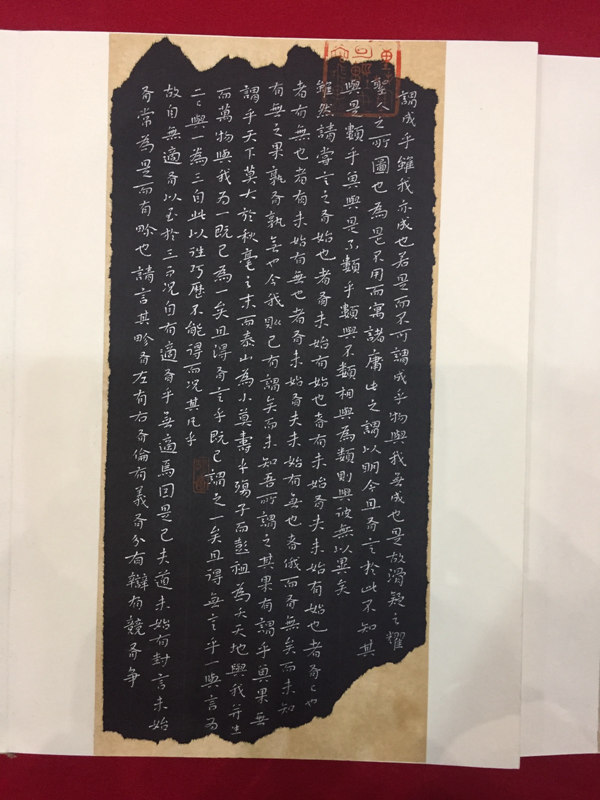 謂成乎雖我亦成也若是而不可謂成乎物與我無成也是故滑疑之耀
聖人之所圖也為是不用而寓諸庸此之謂以明今且有言於此不知其
與是類乎其與是不類乎類與不類相與為類則與彼無以異矣
雖然請嘗言之有始也者有未始有始也者有未始有夫未始有始也者有〻也
者有無也者有未始有無也者有未始有夫未始有無也者俄而有無矣而未知
有無之果孰有孰無也今我則已有謂矣而未知吾所謂之其果有謂乎其果無
謂乎天下莫大於秋毫之末而泰山為小莫壽乎殤子而彭祖為夭天地與我並生
而萬物與我為一既已為一矣且得有言乎既已謂之一矣且得無言乎一與言為
二〻與一為三自此以往巧歷不能得而況其凡乎
故自無適有以至於三而況自有適有乎無適焉因是已夫道未始有封言未始
有常為是而有畛也請言其畛有左有右有倫有義有分有辯有競有爭